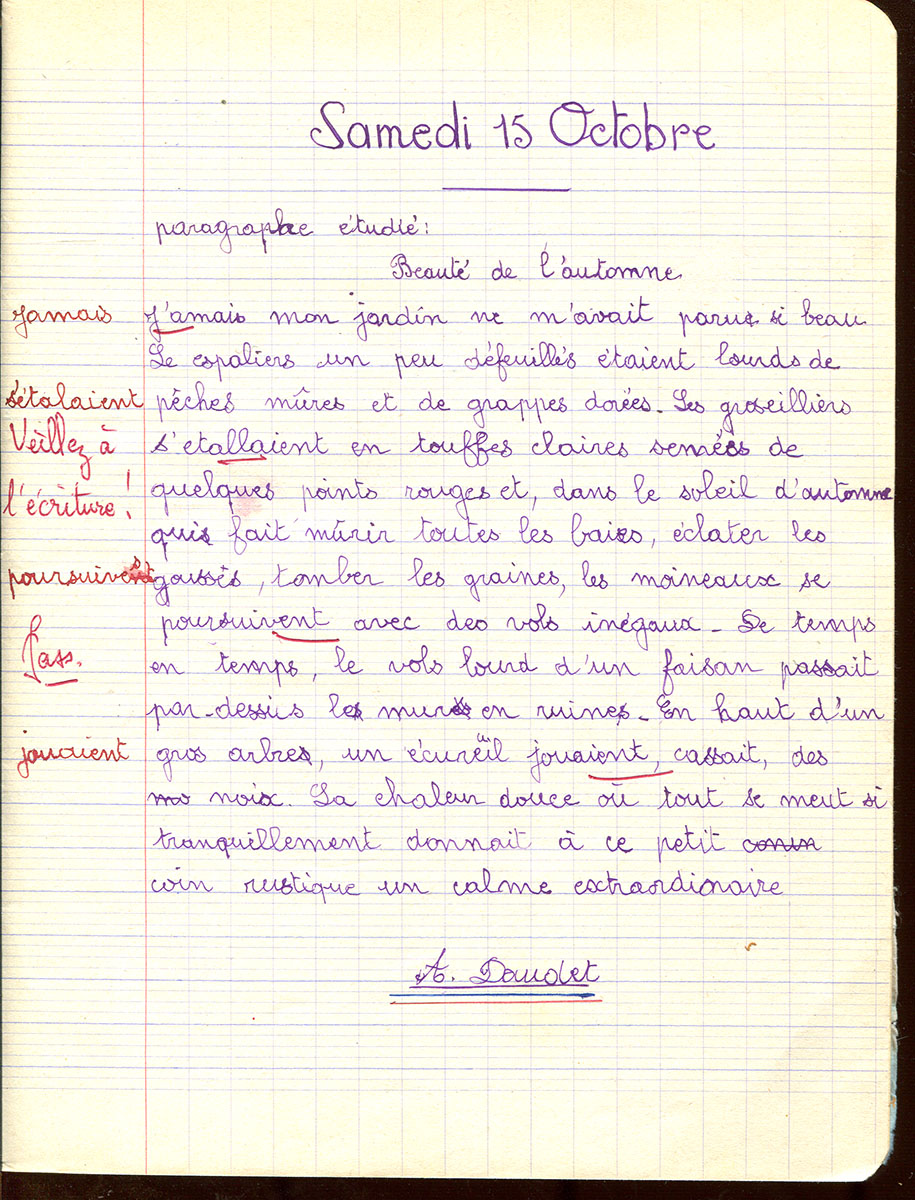 Samedi 15 Octobre
paragraphe étudié :
Beauté de l'automne
jamais
J'amais mon jardin ne m'avait parue si beau
Le espaliers un peu défeuillés étaient lourds de
s'étalaient
pêches mûres et de grappes dorées. Les groseilliers
Veillez à
s'etallaient en touffes claires semées de
l'écriture !
quelques points rouges et, dans le soleil d'automne
qui fait mûrir toutes les baies, éclater les
poursuivent
gousses, tomber les graines, les moineaux se
poursuivent avec des vols inégaux. De temps
Pass.
en temps, le vols lourd d'un faisan passait
par-dessus les murs en ruines. En haut d'un
jouaient
gros arbres, un écureuil jouaient, cassait, des
noix. La chaleur douce où tout se meut si
tranquillement donnait à ce petit
coin rustique un calme extraordinaire
A. Daudet